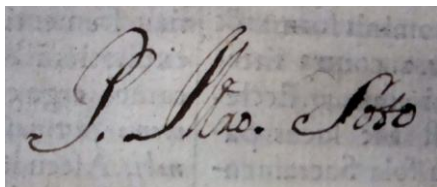 P. Mro. Soto